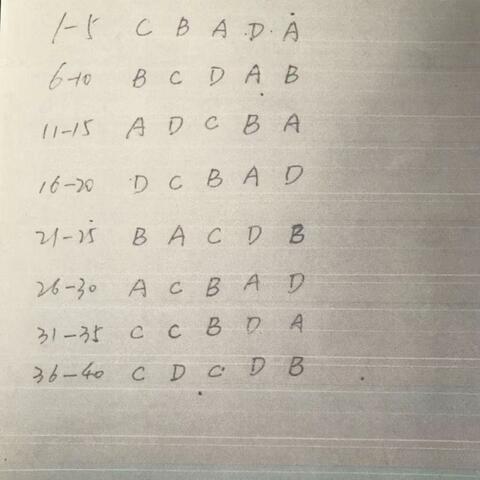 1-5 C B A D A
6-10 B C D A B
11-15 A D C B A
16-20 D C B A D
21-25 B A C D B
26-30 A C B A D
31-35 C C B D A
36-40 C D C D B